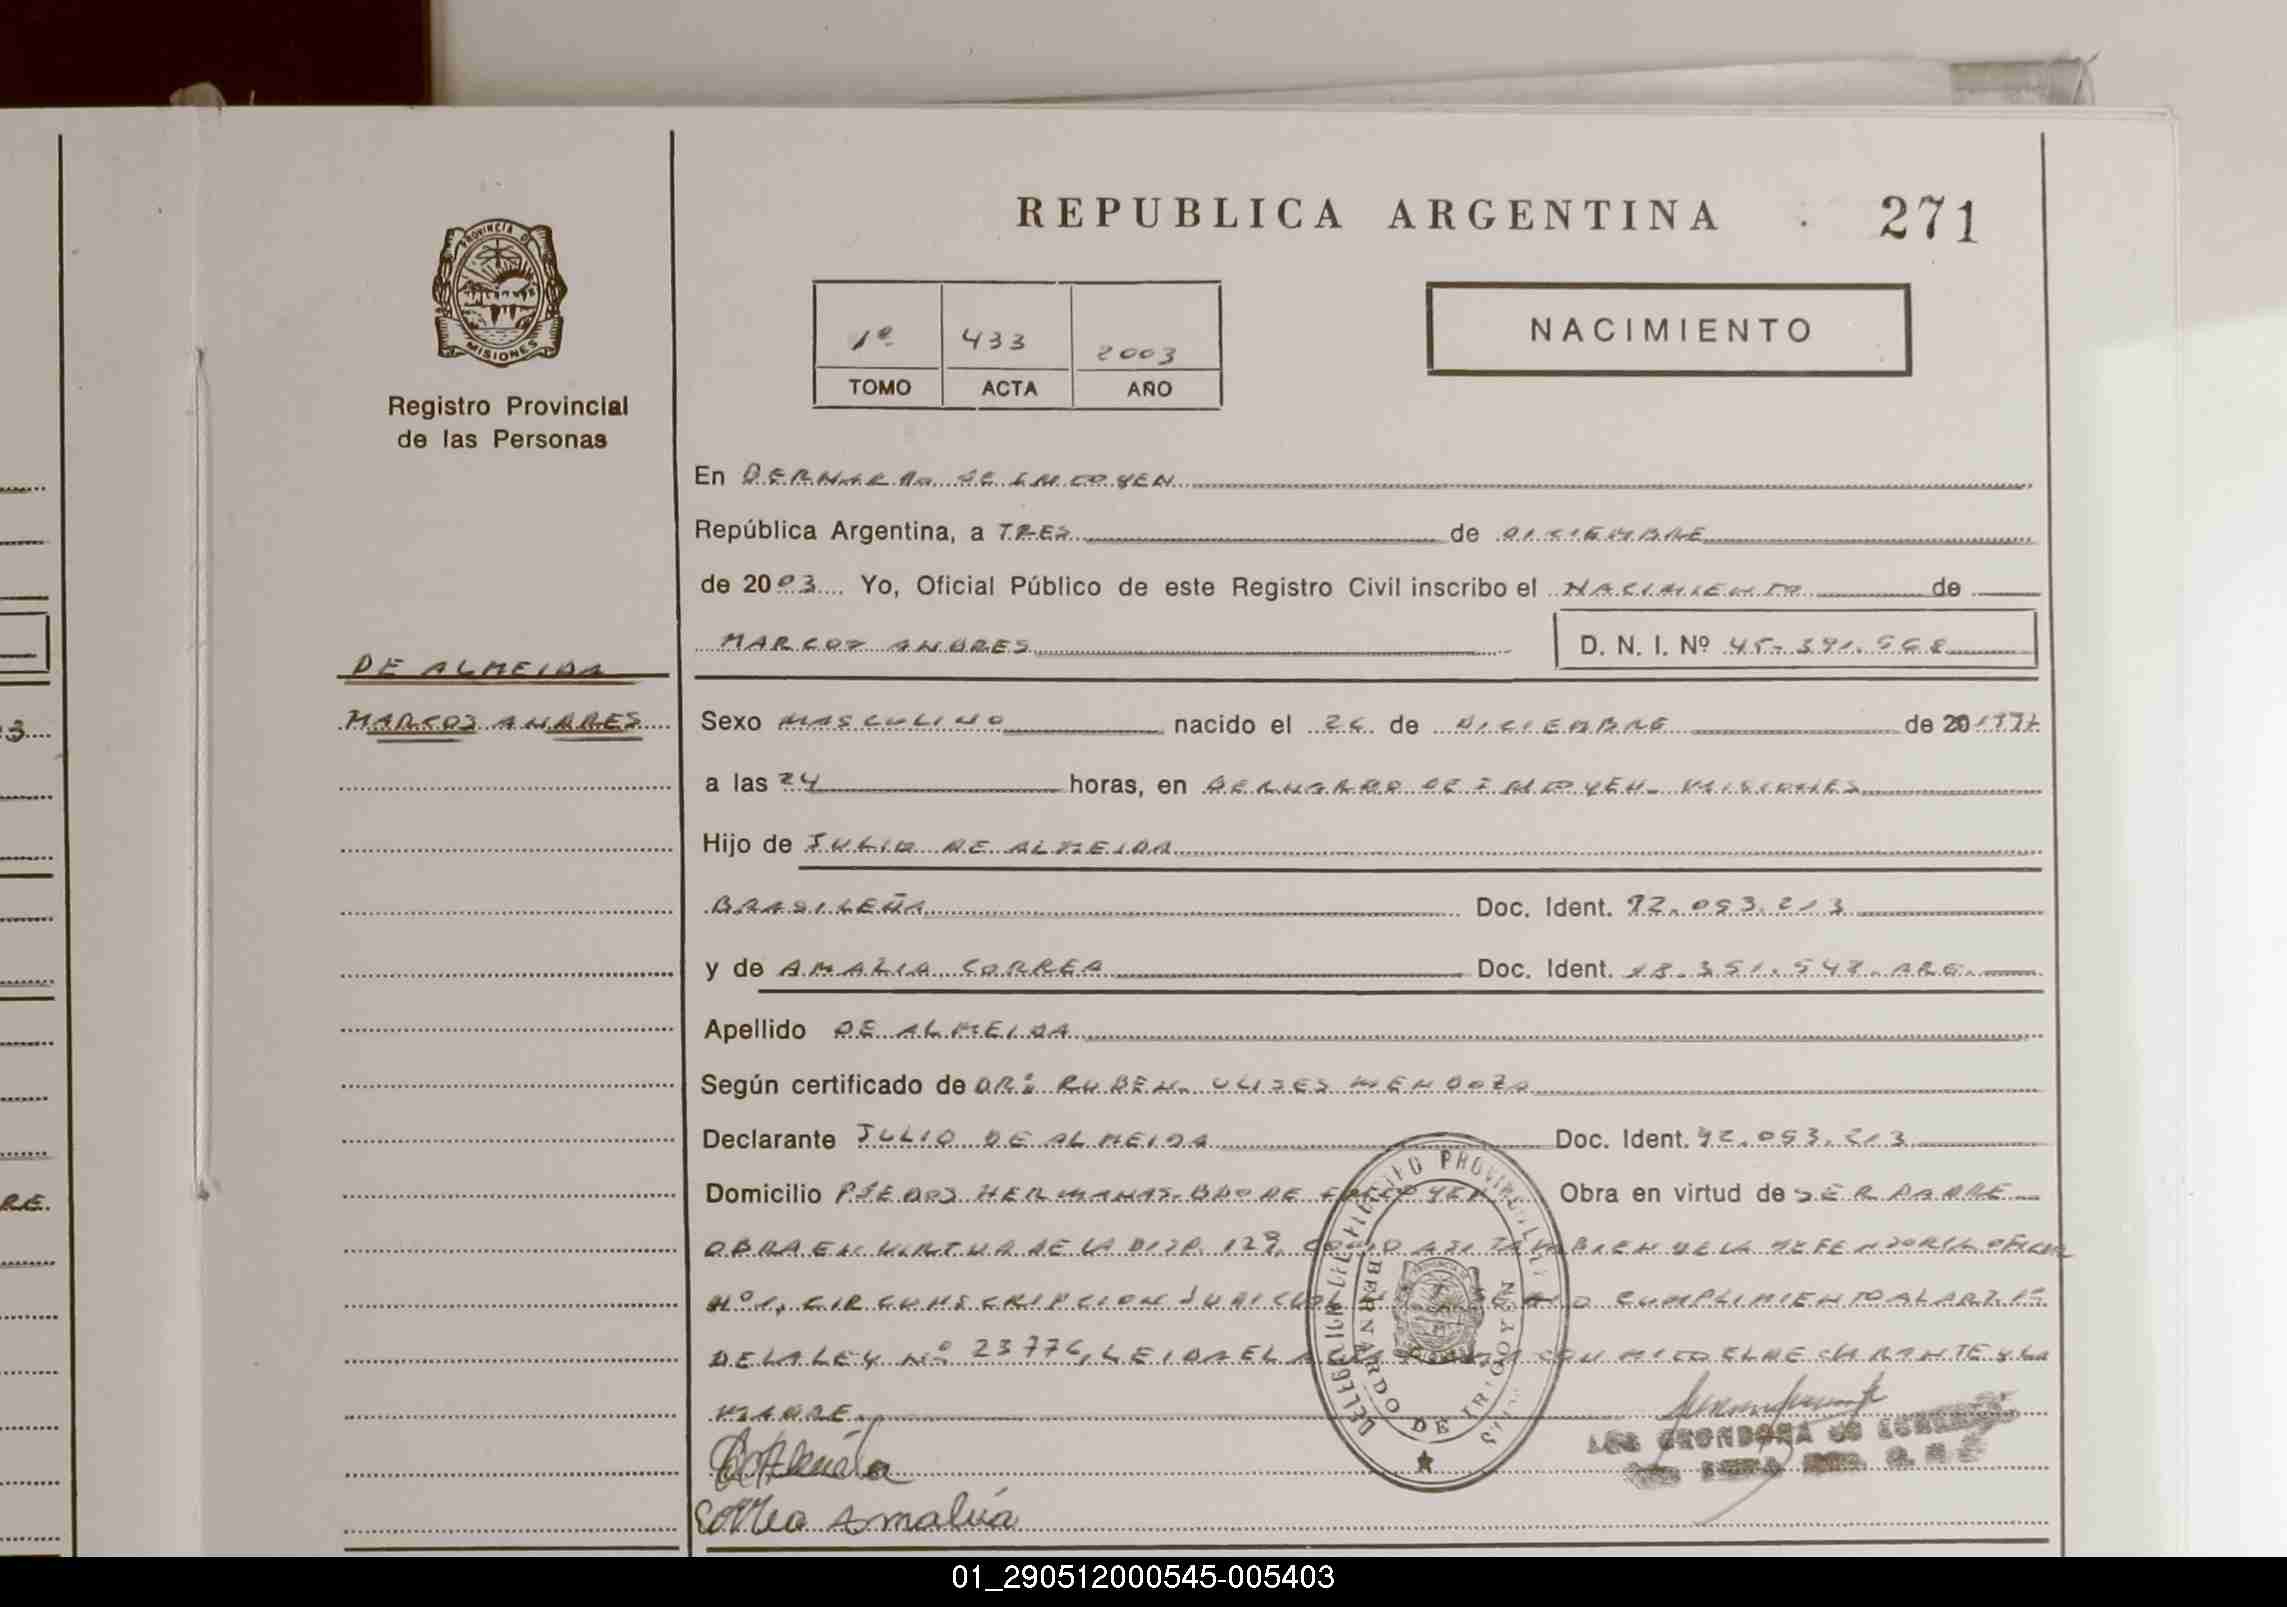 REPUBLICA ARGENTINA
271
PROVINCIA DE
MISIONES
Registro Provincial
de las Personas
1º 433 2003
TOMO ACTA AÑO
NACIMIENTO
En BERNARDO DE IRIGOYEN
República Argentina, a TRES de DICIEMBRE
de 2003 Yo, Oficial Público de este Registro Civil inscribo el NACIMIENTO de
MARCOS ANDRES D. N. I. Nº 45.391.568
DE ALMEIDA
MARCOS ANDRES
Sexo MASCULINO nacido el 26 de DICIEMBRE de 20
a las 24 horas, en BERNARDO DE IRIGOYEN - MISIONES
Hijo de JULIO DE ALMEIDA
BRASILEÑA Doc. Ident. 92.053.213
y de AMALIA CORREA Doc. Ident. 18.351.547. ARG.
Apellido DE ALMEIDA
Según certificado de DR: RUBEN ULISES MENDOZA
Declarante JULIO DE ALMEIDA Doc. Ident. 92.053.213
Domicilio PJE DOS HERMANAS. BDO DE IRIGOYEN Obra en virtud de SER PADRE
OBRA EN VIRTUD DE LA DISP. 129, COMO ASI TAMBIEN DE LA DEFENSORIA OFICIAL
Nº 1, CIRCUNSCRIPCION JUDICIAL CUMPLIMIENTO AL ART. 1º
DE LA LEY Nº 23776, LEIDA EL ACTA FIRMA CONMIGO EL DECLARANTE Y LA
MADRE.
DELEGACION DEL REGISTRO PROVINCIAL
BERNARDO DE IRIGOYEN
Correa Amalia
03
RE.
01_290512000545-005403